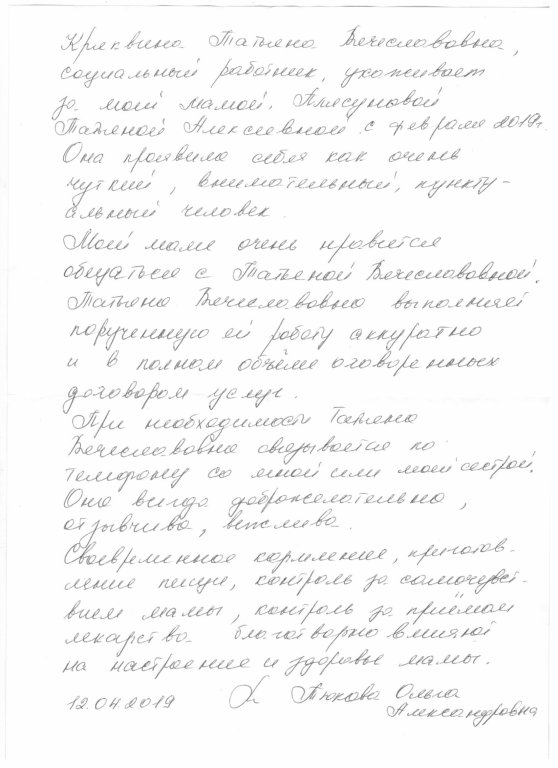 Кряквина Татьяна Вечеславовна,
социальный работник, ухаживает
за моей мамой, Плисуновой
Татьяной Алексеевной с февраля 2019г.
Она проявила себя как очень
чуткий, внимательный, пункту-
альный человек.
Моей маме очень нравится
общаться с Татьяной Вечеславовной.
Татьяна Вечеславовна выполняет
порученную ей работу аккуратно
и в полном объёме оговоренных
договором услуг.
При необходимости Татьяна
Вечеславовна связывается по
телефону со мной или моей сестрой.
Она всегда доброжелательна,
отзывчива, вежлива.
Своевременное кормление, приготов-
ление пищи, контроль за самочувст-
вием мамы, контроль за приёмом
лекарства благотворно влияют
на настроение и здоровье мамы.
12.04.2019 Ольга
Александровна